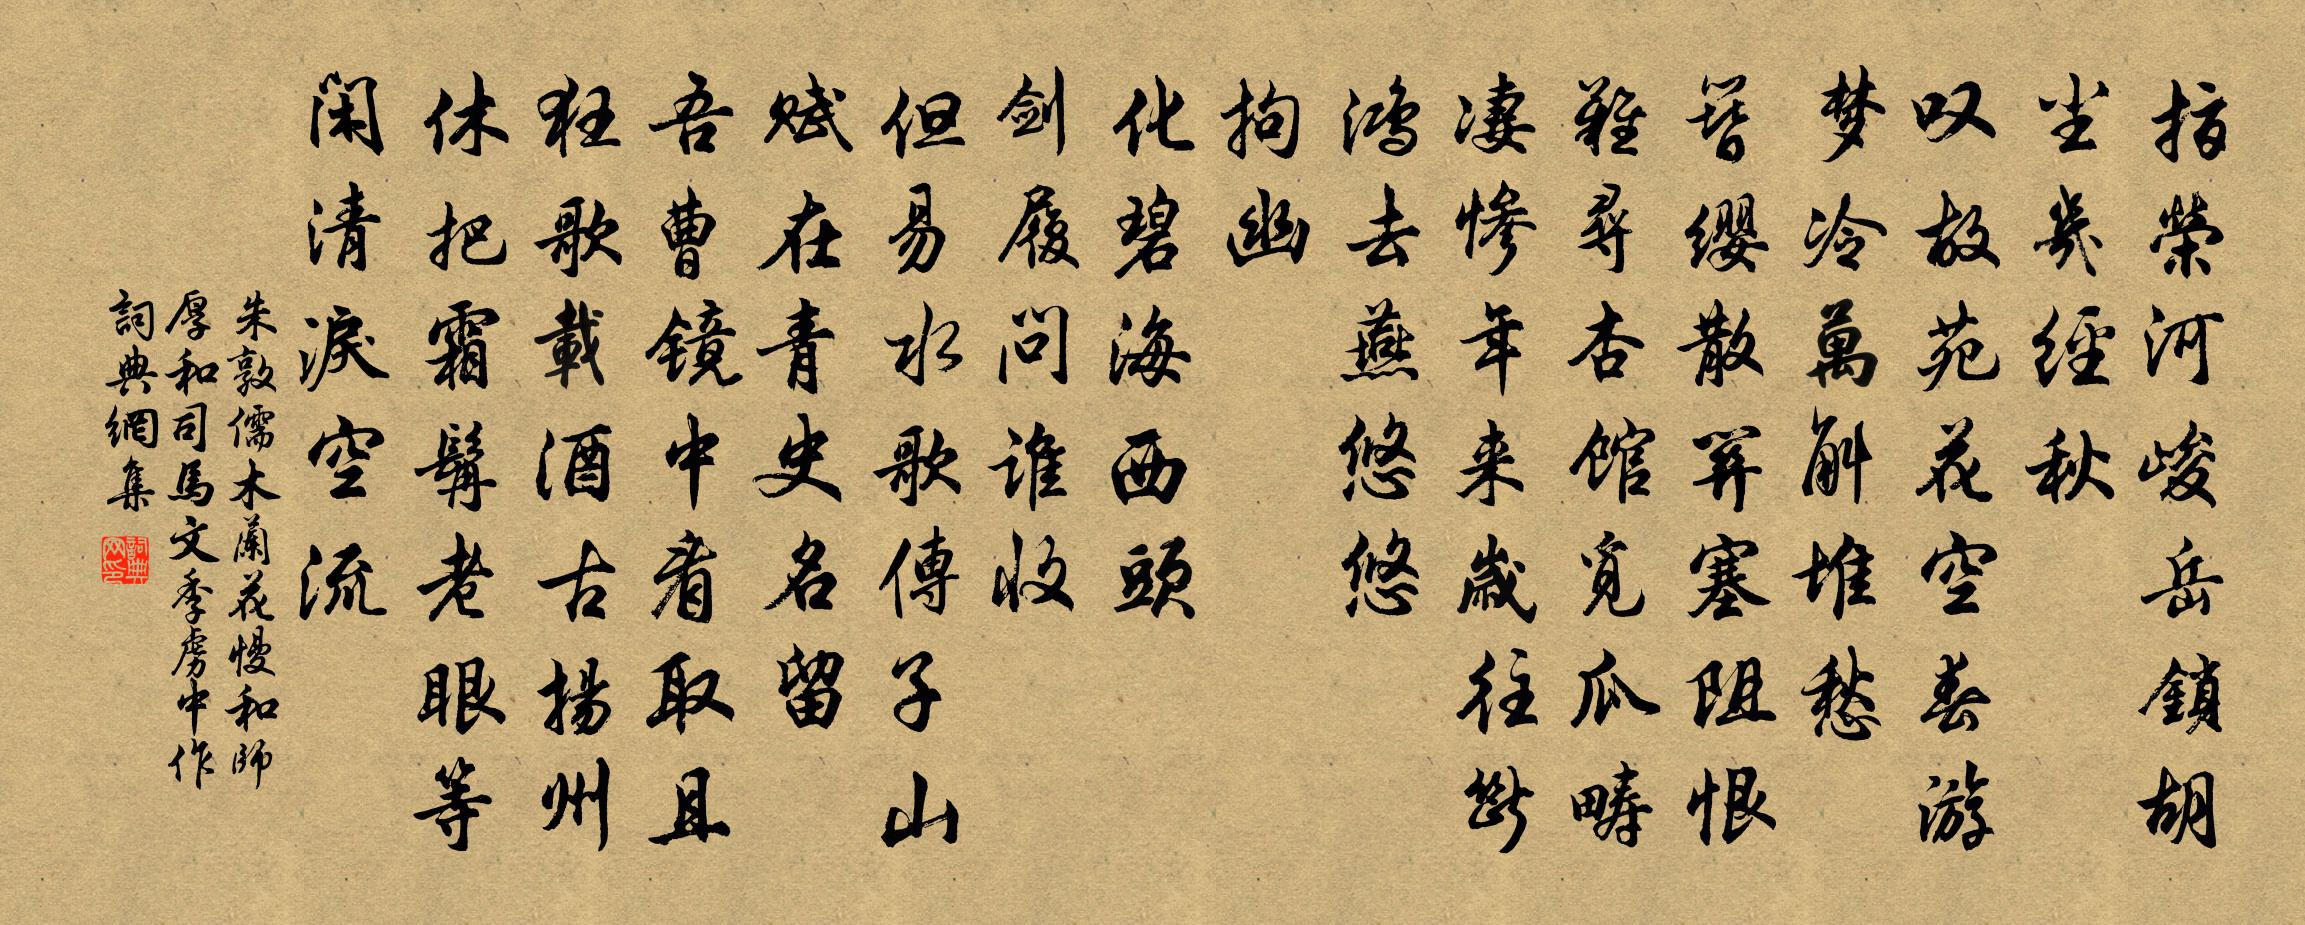 指榮河峻岳鎖胡
尘幾經秋
叹故苑花空春游
梦冷萬斛堆愁
簪缨散関塞阻恨
難尋杏馆覓瓜疇
凄慘年来歲往斷
鸿去燕悠悠
拘幽
化碧海西頭
剑履问誰收
但易水歌傳子山
赋在青史名留
吾曹镜中看取且
狂歌載酒古揚州
休把霜髯老眼等
闲清淚空流
朱敦儒木蘭花慢和師
厚和司馬文季虜中作
詞典網集
詞典网印